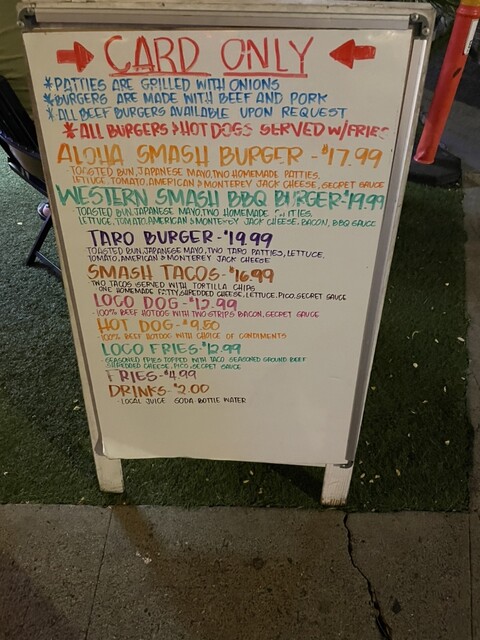 CARD ONLY
*PATTIES ARE GRILLED WITH ONIONS
*BURGERS ARE MADE WITH BEEF AND PORK
*ALL BEEF BURGERS AVAILABLE UPON REQUEST
*ALL BURGERS & HOT DOGS SERVED W/FRIES
ALOHA SMASH BURGER - $17.99
TOASTED BUN, JAPANESE MAYO, TWO HOMEMADE PATTIES,
LETTUCE, TOMATO, AMERICAN & MONTEREY JACK CHEESE, SECRET SAUCE
WESTERN SMASH BBQ BURGER-$19.99
TOASTED BUN, JAPANESE MAYO, TWO HOMEMADE
LETTUCE, TOMATO, AMERICAN & MONTEREY JACK CHEESE, BACON, BBQ SAUCE
TARO BURGER-$19.99
TOASTED BUN, JAPANESE MAYO, TWO TARO PATTIES, LETTUCE,
TOMATO, AMERICAN & MONTEREY JACK CHEESE
SMASH TACOS-$16.99
TWO TACOS SERVED WITH TORTILLA CHIPS
ONE HOMEMADE PATTY, SHREDDED CHEESE, LETTUCE, PICO, SECRET SAUCE
LOCO DOG-$12.99
-100% BEEF HOTDOG WITH TWO STRIPS BACON, SECRET SAUCE
HOT DOG-$9.50
-100% BEEF HOTDOG WITH CHOICE OF CONDIMENTS
LOCO FRIES-$12.99
-SEASONED FRIES TOPPED WITH TACO SEASONED GROUND BEEF
SHREDDED CHEESE, PICO, SECRET SAUCE
FRIES-$4.99
DRINKS-$2.00
-LOCAL JUICE SODA BOTTLE WATER